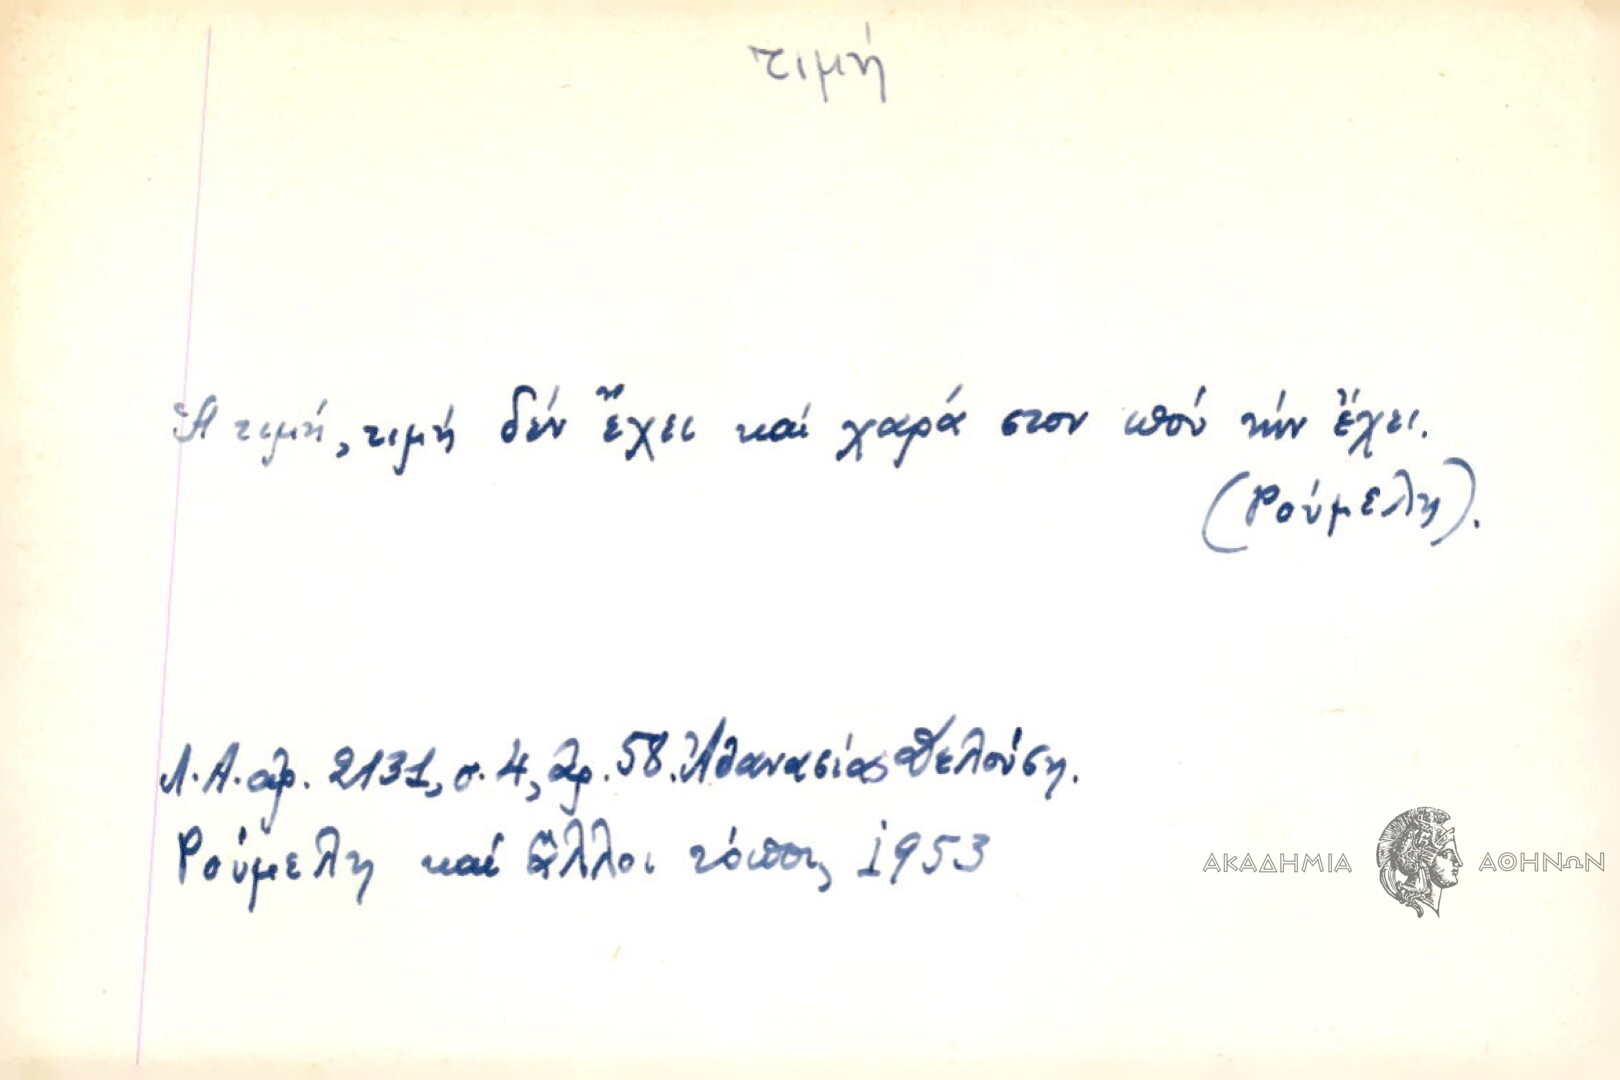 τιμή
Ἡ τιμή, τιμή δέν ἔχει καί χαρά στον ποὺ τήν ἔχει.
(Ρούμελη).
Λ.Α. ἀρ. 2131, σ. 4, ἀρ. 58. Ἀθανασίας
Ρούμελη καί ἄλλοι τόποι, 1953
ΑΚΑΔΗΜΙΑ ΑΘΗΝΩΝ